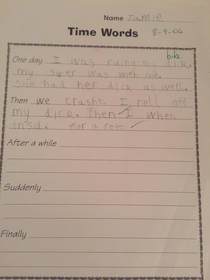 Name Jamie
Time Words 8-9-04
bike
One day I was riding my dick.
my sister was with me.
She had her dick as well.
Then we crashts I fell off
my dick. then I when
insid. for a rest
After a while
Suddenly
Finally